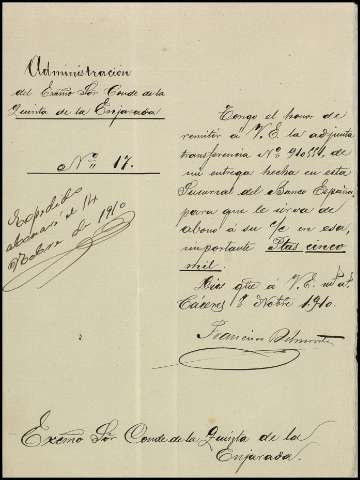 Administracion
del Exmo Sor Conde de la
Quinta de la Enjarada
Nº 17.
Tengo el honor de
remitir á V.E. la adjunta
transferencia Nº 910551. de
mi entrega hecha en esta
Sucursal del Banco España,
para que le sirva de
abono á su c/c en esa,
importante Ptas cinco
mil.
Dios gue á V.E. m. a.
Cáceres 8 Nobre 1910.
Francisco Belmonte
14
Nobre de 1910
Excmo Sor Conde de la Quinta de la
Enjarada.